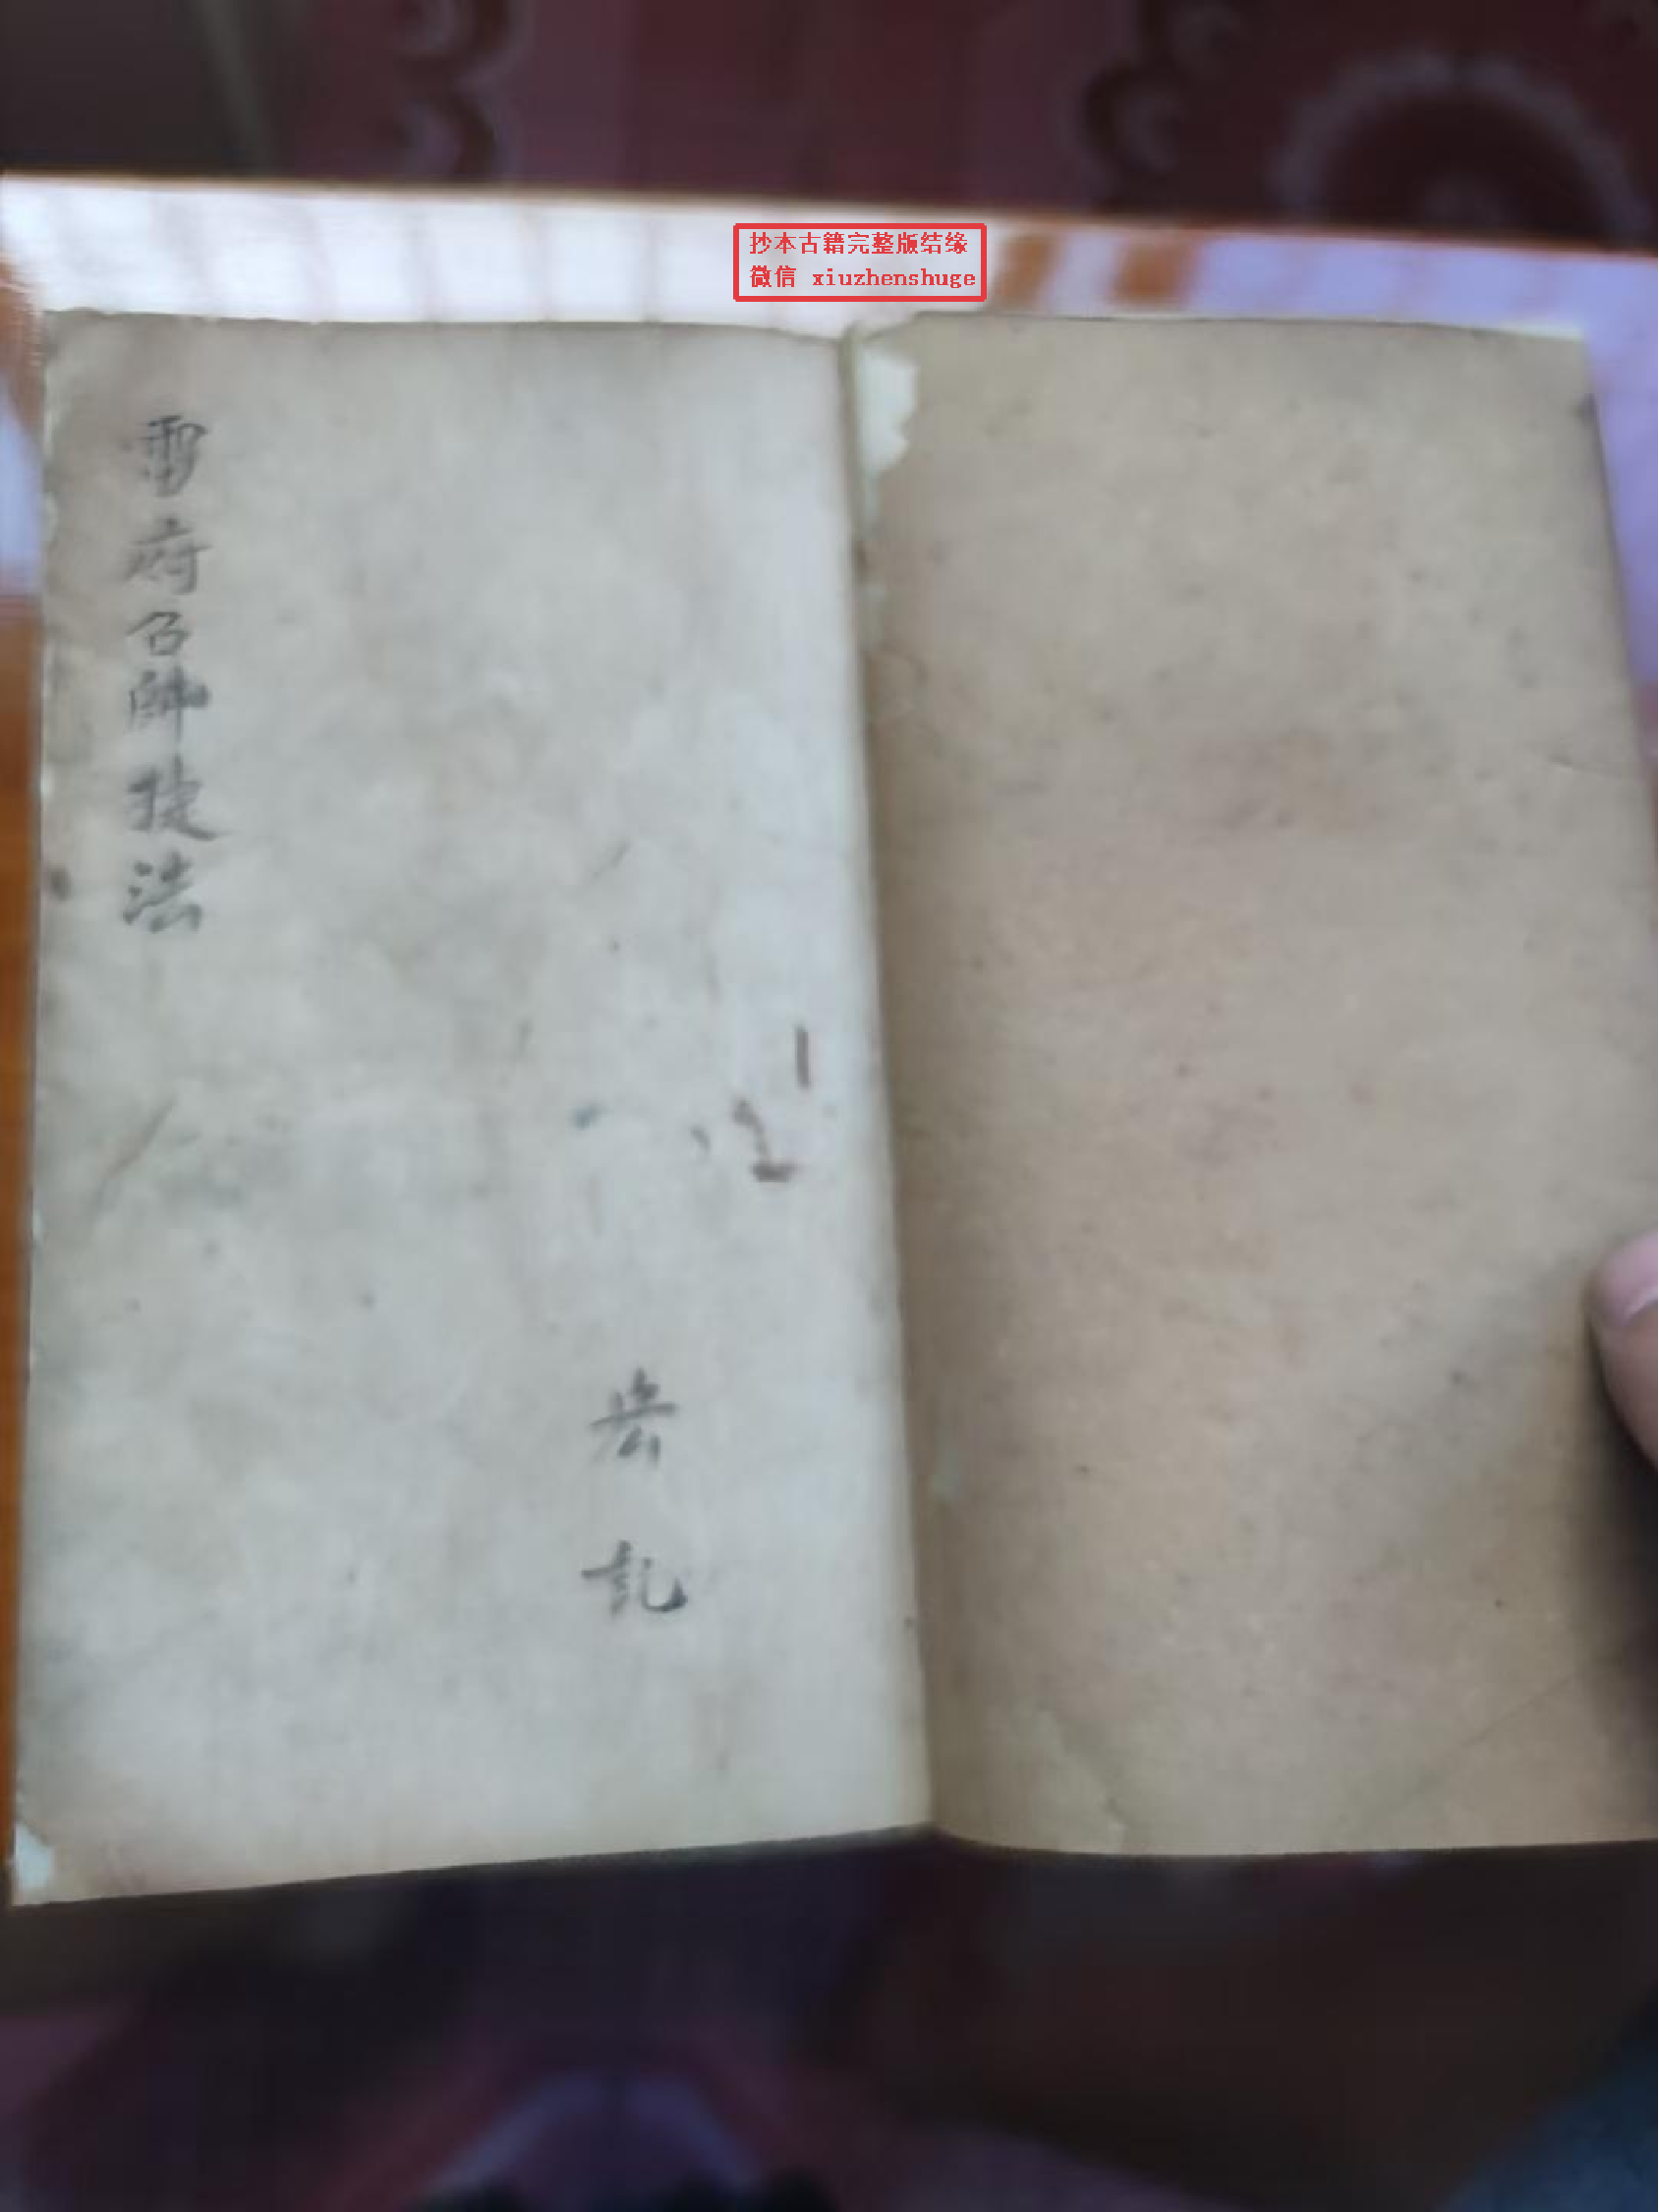 抄本古籍完整版结缘
微信 xiuzhenshuge
雷府召帥捷法
宏記